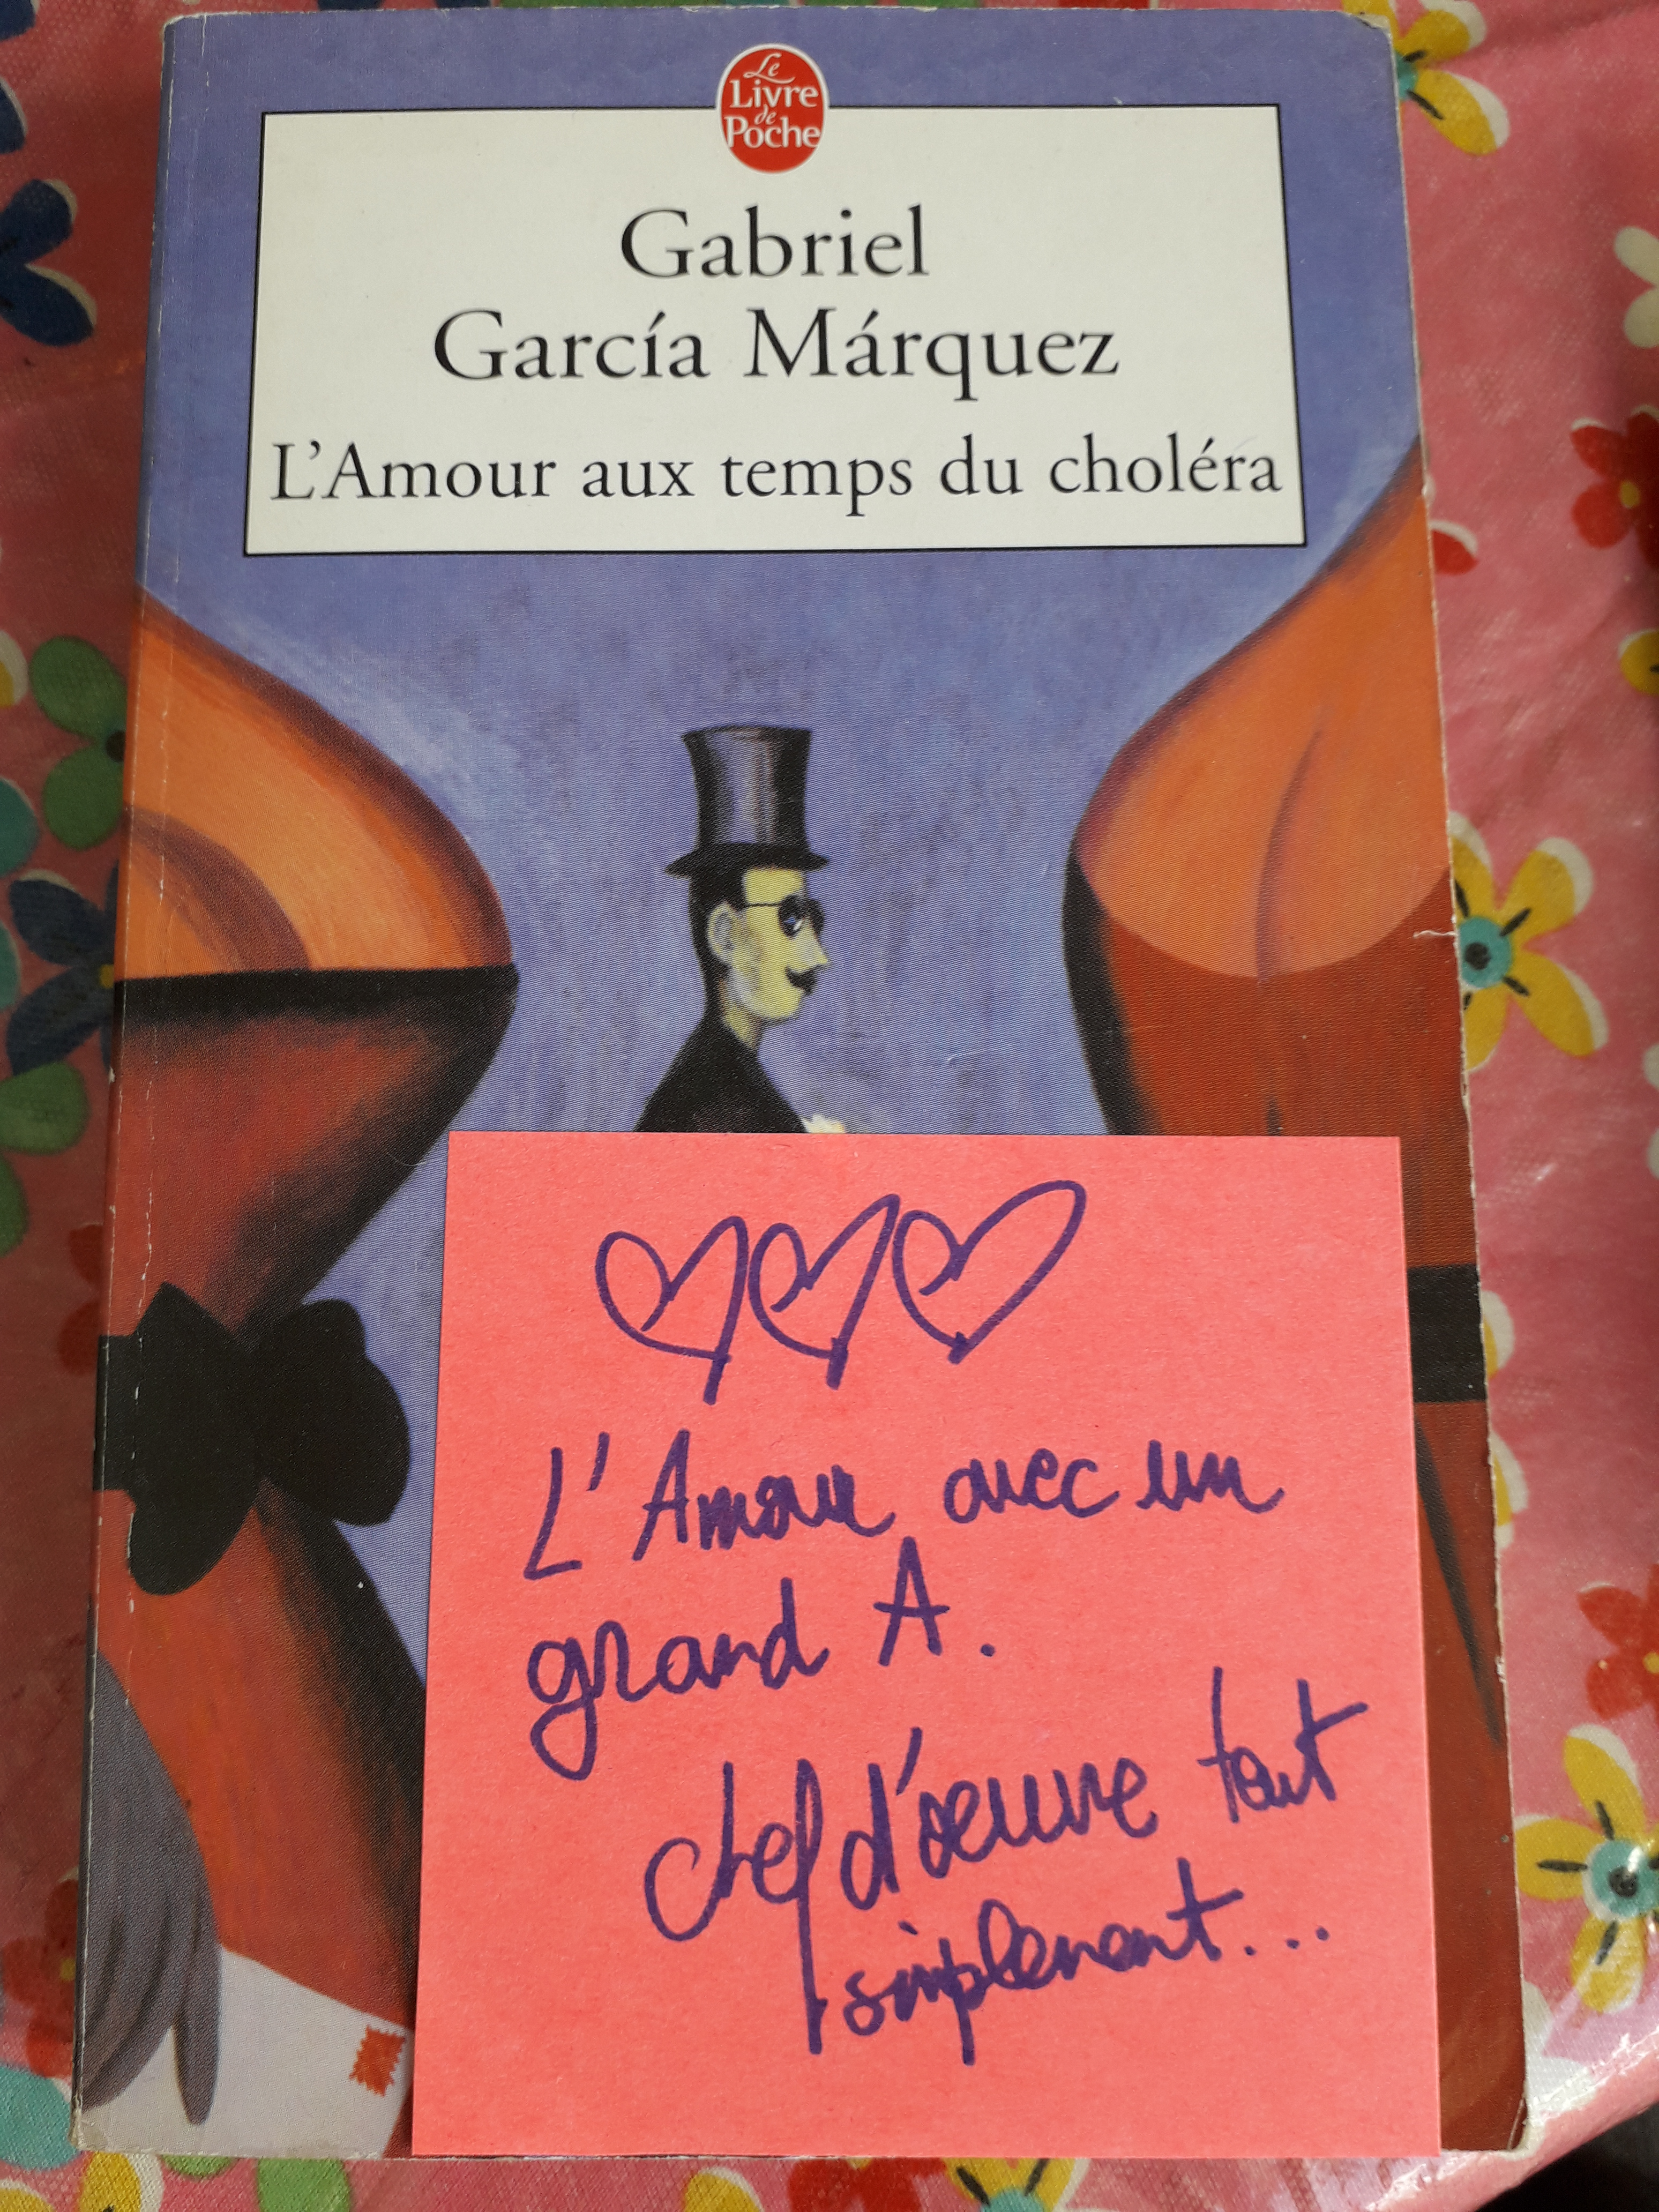 Le
Livre
de
Poche
Gabriel
García Márquez
L'Amour aux temps du choléra
L'Amour avec un
grand A.
chef d'œuvre tout
simplement...